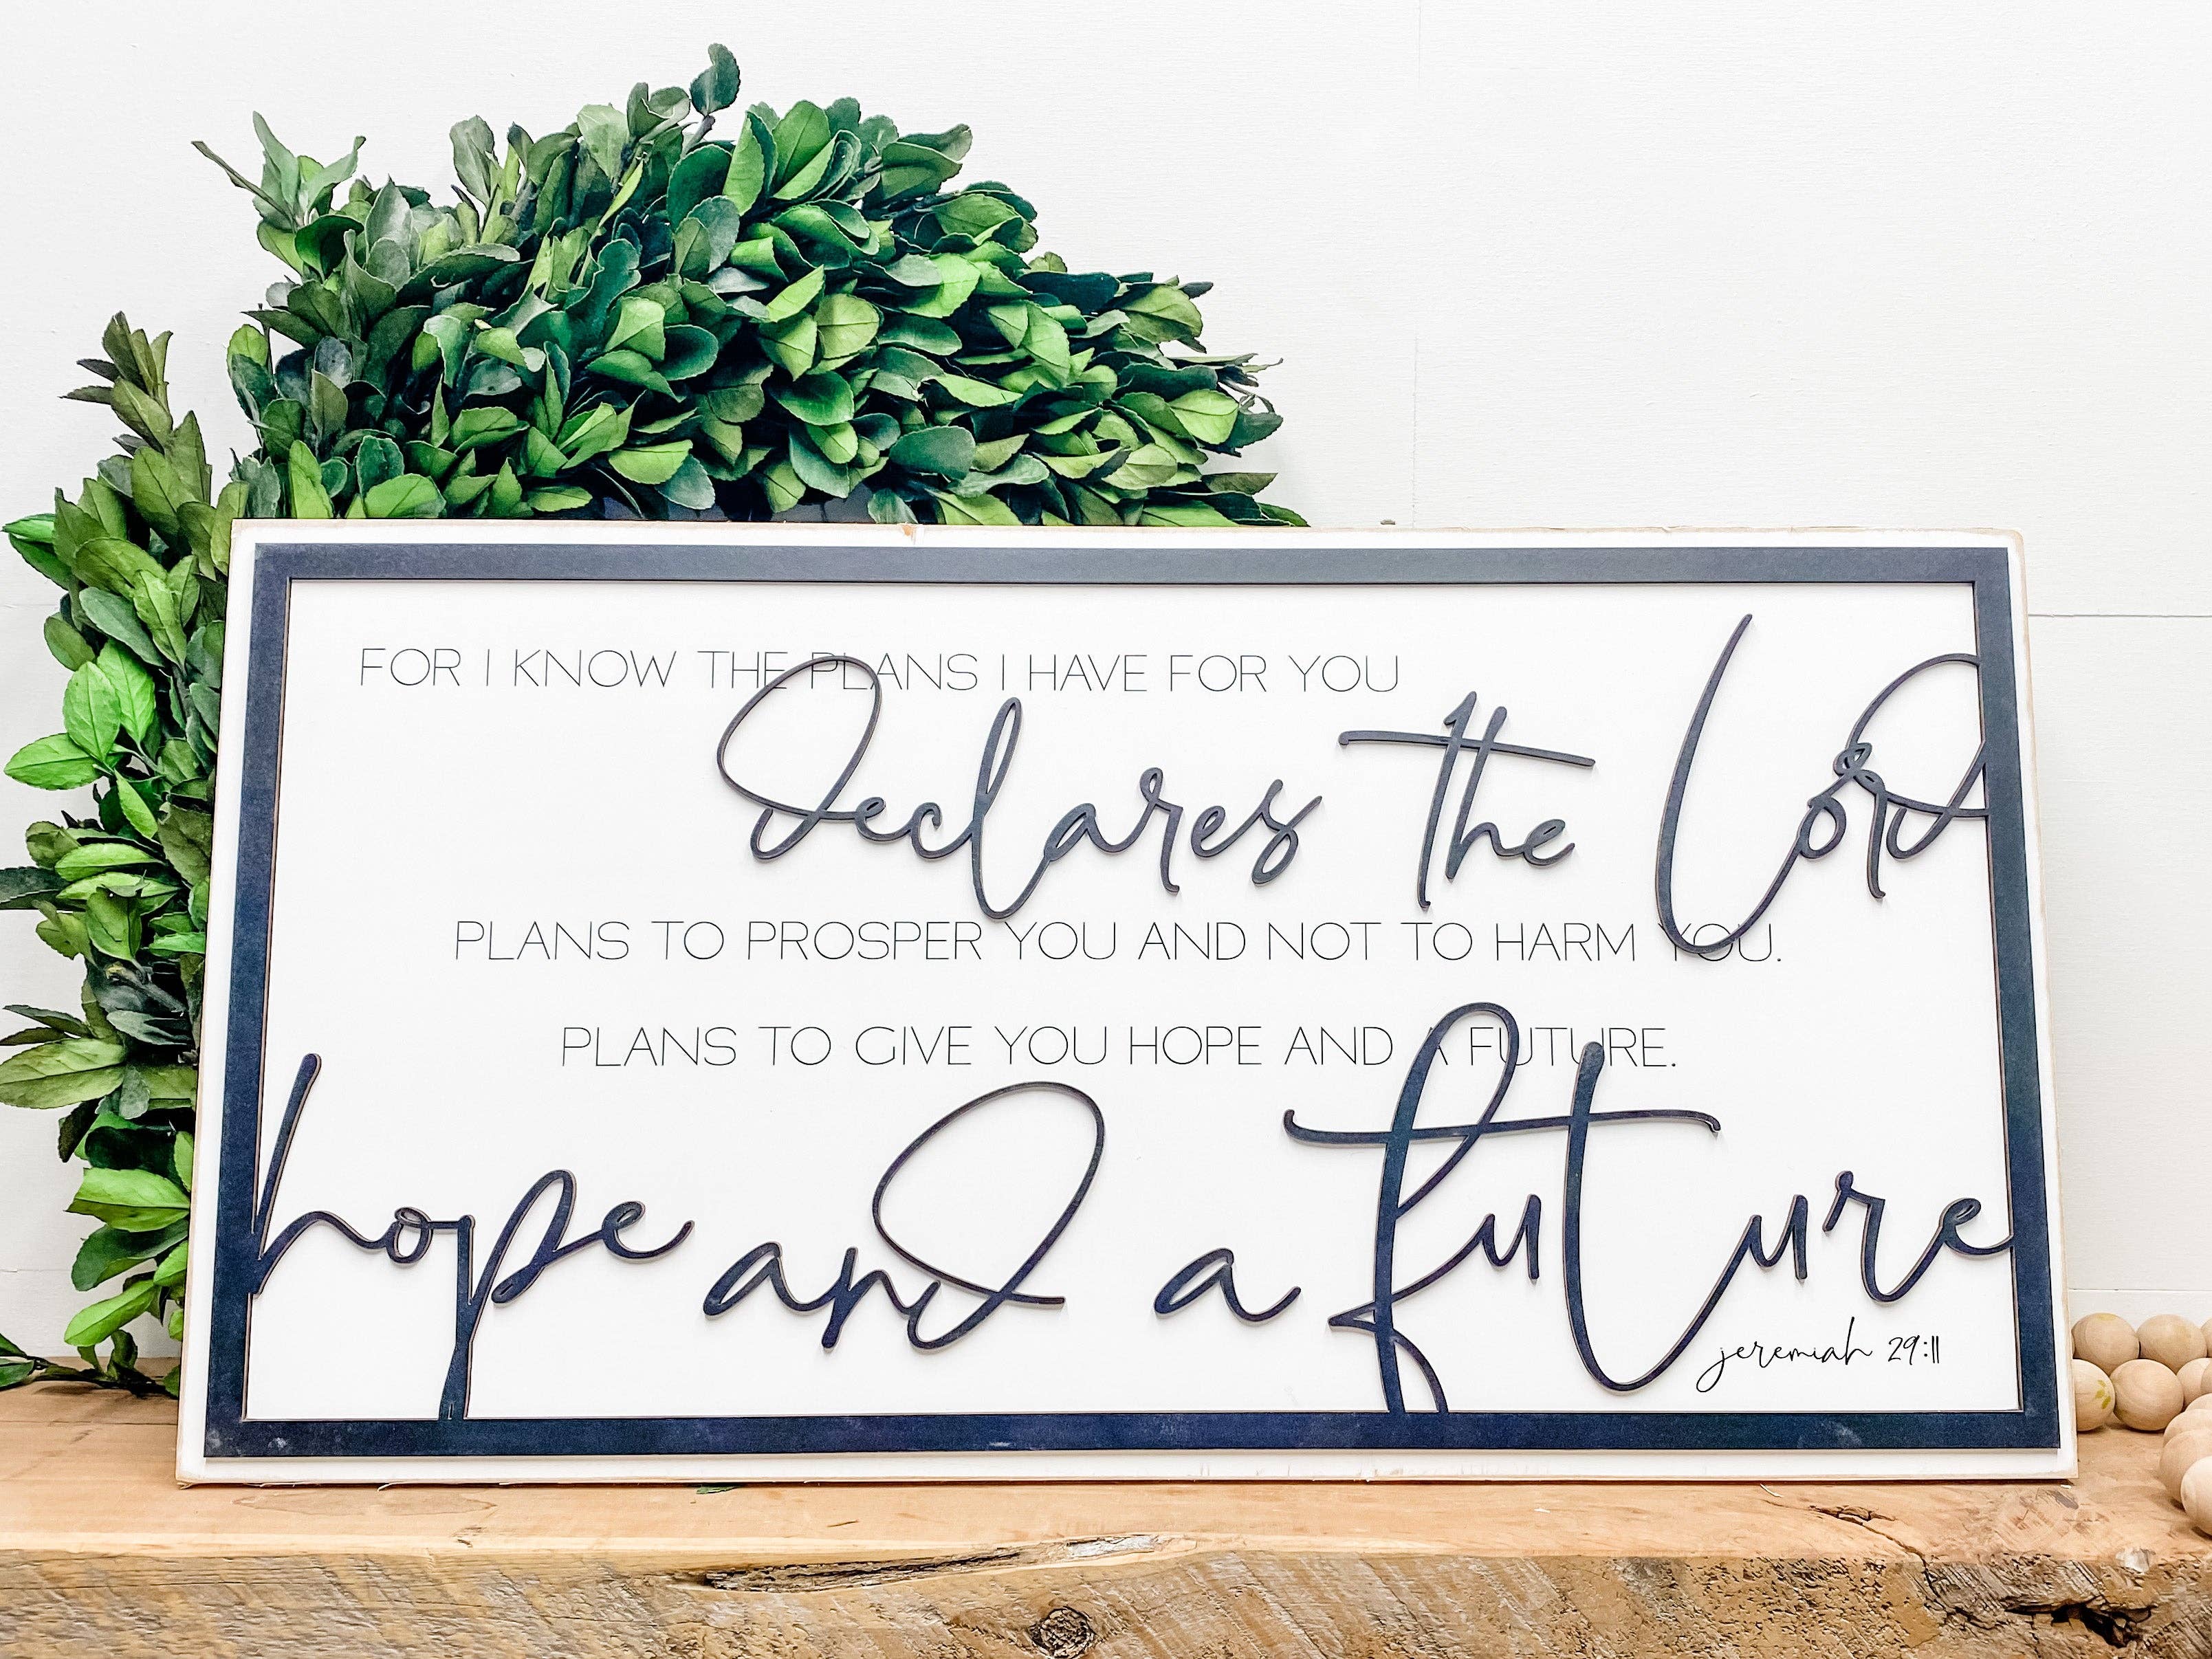 FOR I KNOW THE PLANS I HAVE FOR YOU
Declares the Lord
PLANS TO PROSPER YOU AND NOT TO HARM YOU.
PLANS TO GIVE YOU HOPE AND A FUTURE.
hope and a future
jeremiah 29:11